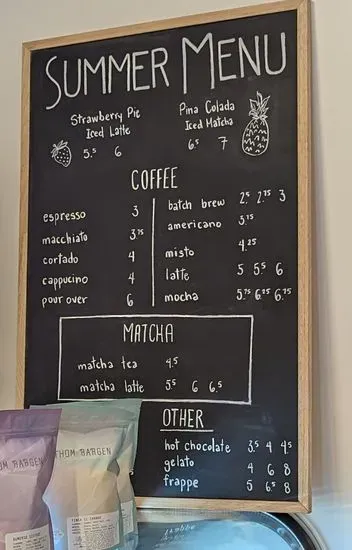 SUMMER MENU
Strawberry Pie
Iced Latte
5.5 6
Pina Colada
Iced Matcha
6.5 7
COFFEE
espresso 3
macchiato 3.75
cortado 4
cappucino 4
pour over 6
batch brew 2.5 2.75 3
americano 3.75
misto 4.25
latte 5 5.5 6
mocha 5.75 6.25 6.75
MATCHA
matcha tea 4.5
matcha latte 5.5 6 6.5
OTHER
hot chocolate 3.5 4 4.5
gelato 4 6 8
frappe 5 6.5 8
HOM BARGEN
THOM BARGEN